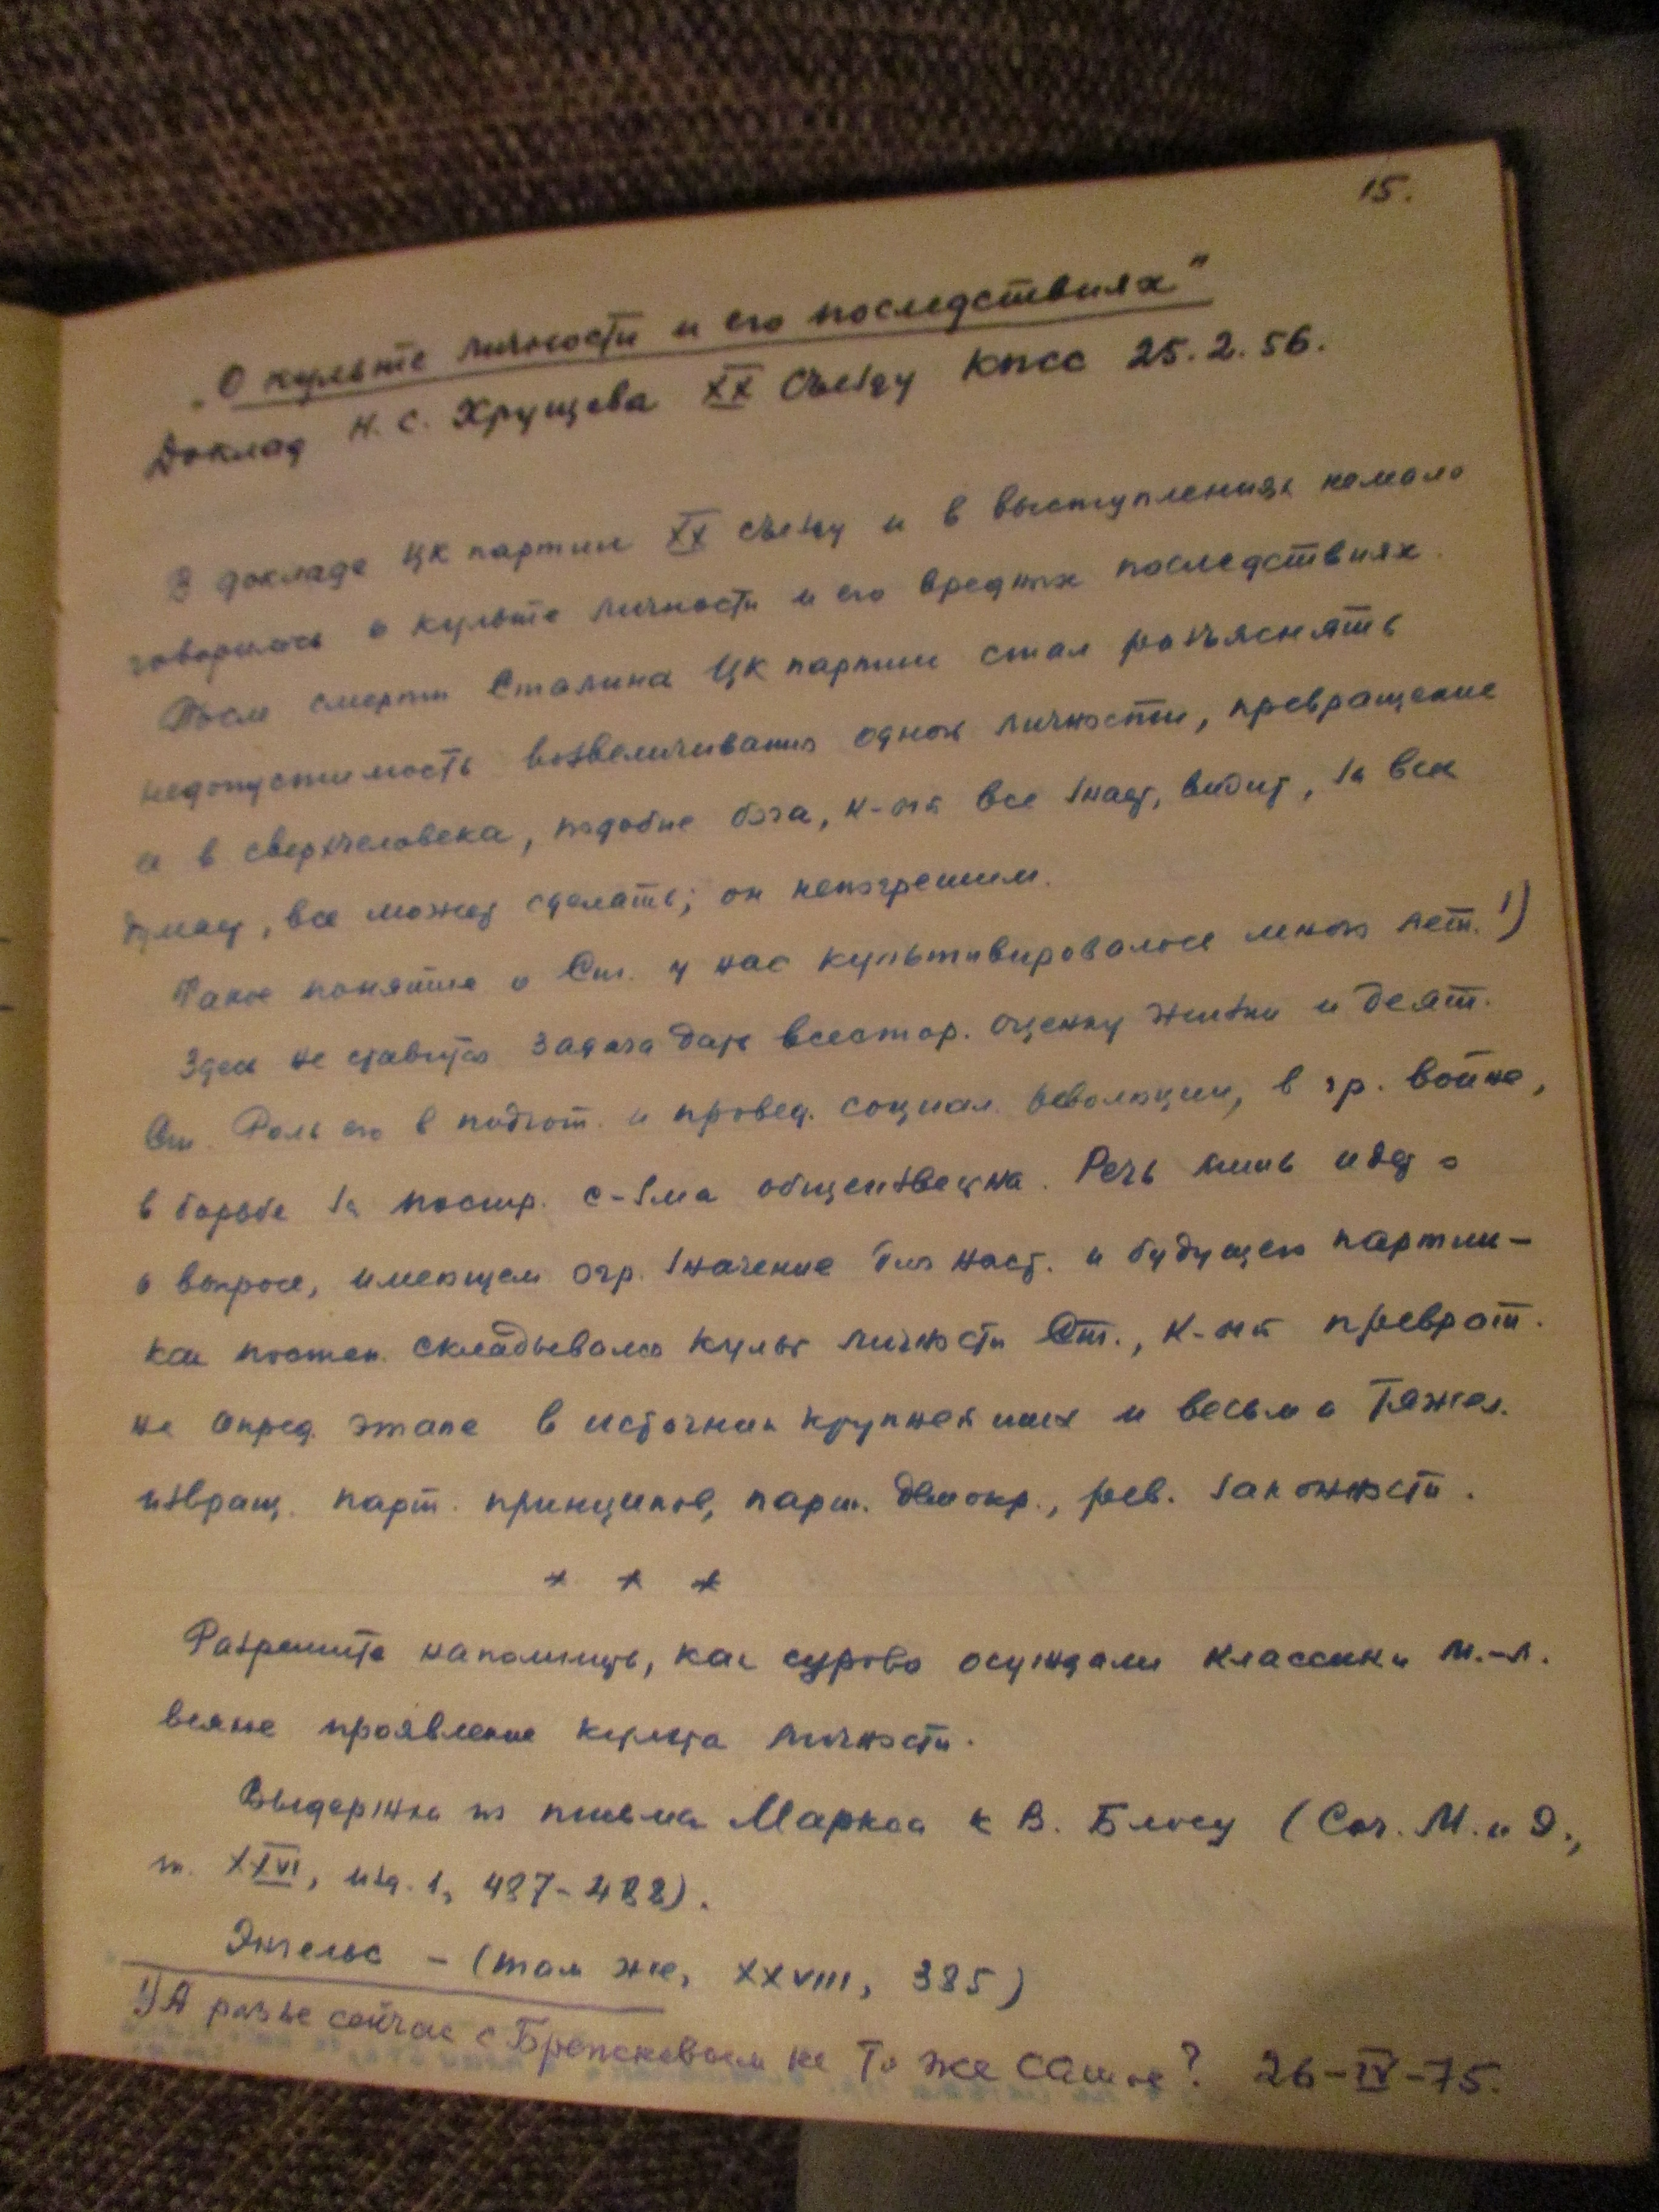 15.
„О культе личности и его последствиях"
Доклад Н. С. Хрущева XX съезду КПСС 25.2.56.
В докладе ЦК партии XX съезду и в выступлениях немало
говорилось о культе личности и его вредных последствиях.
После смерти Сталина ЦК партии стал разъяснять
недопустимость возвеличивания одной личности, превращение
ее в сверхчеловека, подобие бога, к-ый все знает, видит, за всех
думает, все может сделать; он непогрешим.
Такое понятие о Ст. у нас культивировалось много лет. 1)
Здесь не ставится задача дать всестор. оценку жизни и деят.
Ст. Роль его в подгот. и провед. социал. революции, в гр. войне,
в борьбе за постр. с-зма общеизвестна. Речь лишь идет о
о вопросе, имеющем огр. значение для наст. и будущего партии –
как постеп. складывался культ личности Ст., к-ый преврат.
на опред. этапе в источник крупнейших и весьма тяжел.
извращ. парт. принципов, парт. демокр., рев. законности.
* * *
Разрешите напомнить, как сурово осуждали классики м.-л.
всякие проявление культа личности.
Выдержки из письма Маркса к В. Блосу (Соч. М. и Э.,
т. XXVI, изд. 1, 487-488).
Энгельс – (там же, XXVIII, 385)
1) А разве сейчас с Брежневым не то же самое? 26-IV-75.